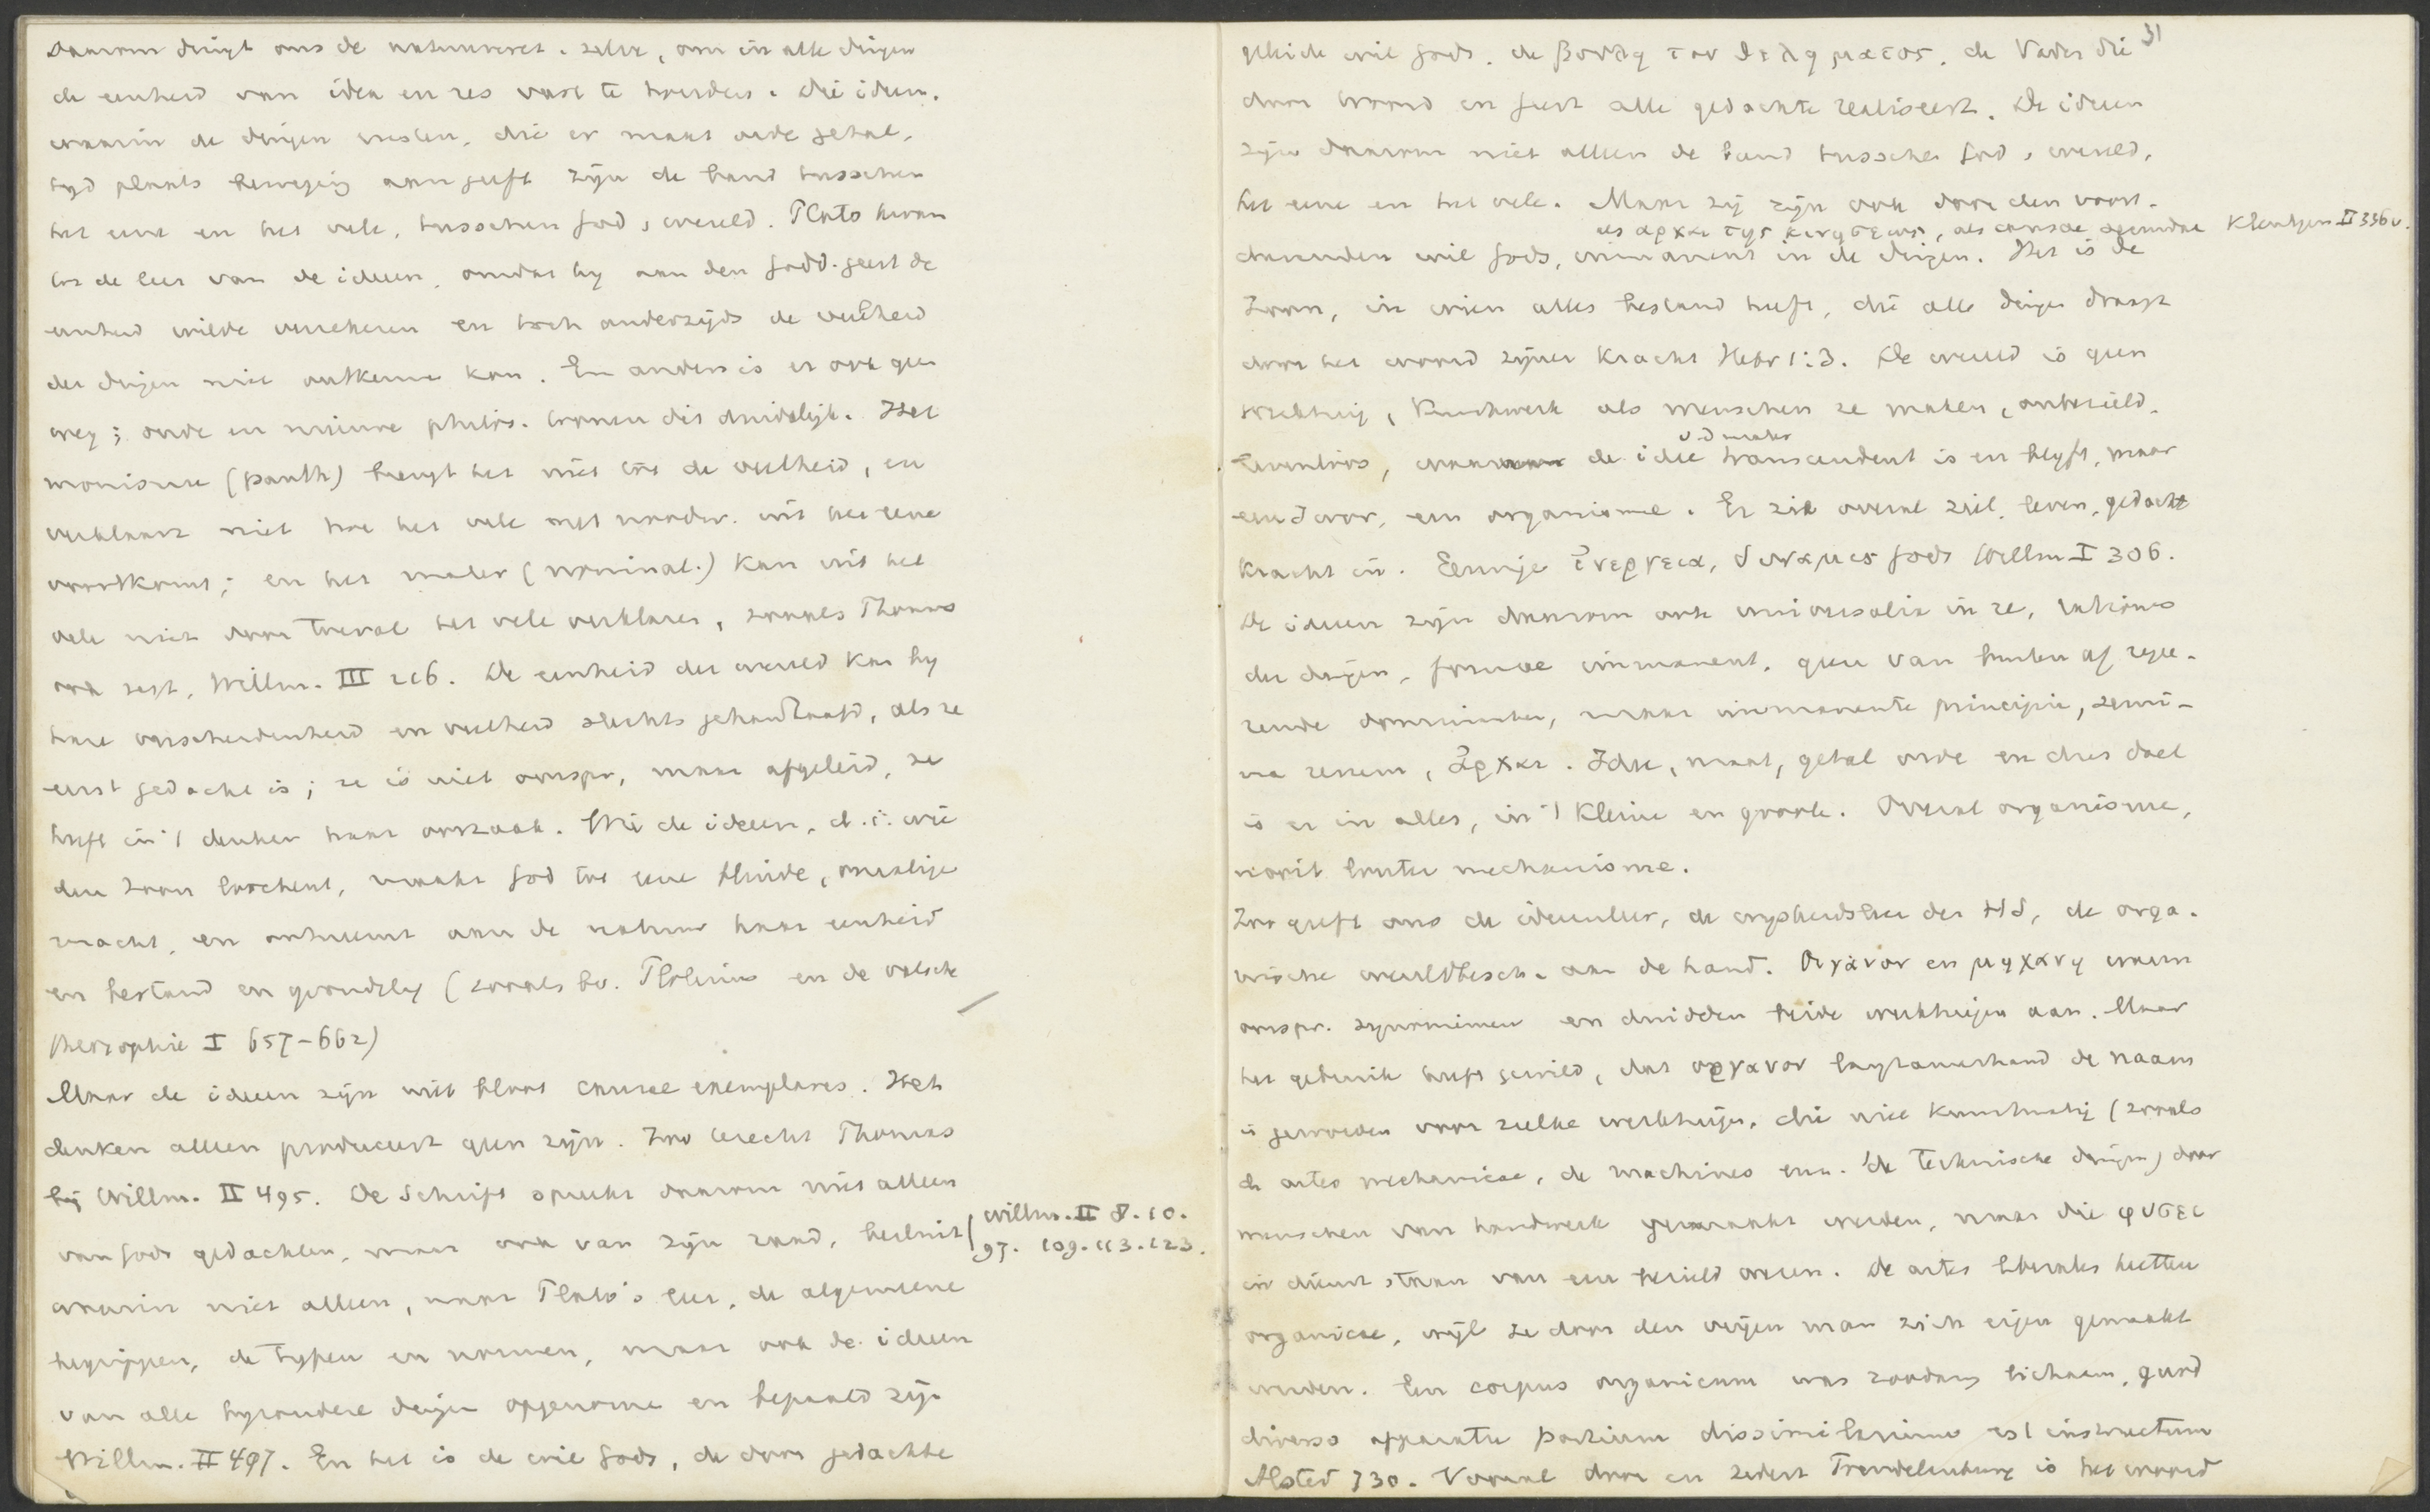 daarom dringt ons de natuurwet. zelve, om in alle dingen
de eenheid van idea en res vast te houden. Die ideen.
waarin de dingen rusten, die er maat orde getal.
tyd plaats beweging aan geeft zijn de band tusschen
het eene en het vele, tusschen God, wereld. Plato kwam
tot de leer van de ideeen, omdat hy aan den godd. geest de
eenheid wilde verzekeren en toch anderzijds de veelheid
der dingen niet ontkennen kon. En anders is er ook geen
weg; oude en nieuwe philos. toonen dit duidelijk. Het
monisme (panth) brengt het niet tot de veelheid, en
verklaart niet hoe het vele uit het eene
voortkomt; en het mater (nominal.) kan uit het
vele niet door toeval het vele verklaren, zooals Thomas
ook zegt, Willm. III 216. De eenheid der wereld kan by
hare verscheidenheid en veelheid slechts gehandhaafd, als ze
eerst gedacht is; ze is niet oorspr, maar afgeleid, ze
heeft in 't denken haar oorzaak. Wie de ideeen, d.i. wie
den Zoon loochent, maakt God tot eene blinde, onzalige
macht, en ontneemt aan de natuur haar eenheid
en bestand en grondslag (zooals bv. Plotinus en de valsche
theosophie I 657-662)
Maar de ideeen zijn niet bloot causae exemplares. Het
denken alleen produceert geen zijn. Zoo terecht Thomas
bij Willm. II 495. De Schrift spreekt daarom niet alleen
van Gods gedachten, maar ook van zijn raad, besluit | Willm. II 8. 10.
97. 109. 113. 123.
waarin niet alleen, naar Plato's leer, de algemeene
begrippen, de typen en normen, maar ook de ideeen
van alle byzondere dingen opgenomen en bepaald zijn
Willm. II 497. En het is de wil Gods, de door gedachte
31
geleide wil Gods. de βουλη του θεληματος. de Vader die
door woord en geest alle gedachte realiseert. De ideeen
zijn daarom niet alleen de band tusschen God, wereld,
het eene en het vele. Maar zij zijn ook door den voort-
als αρχαι της κινησεως, als causae agendae Kleutgen II 336v.
durenden wil Gods, immanent in de dingen. Het is de
Zoon, in wien alles bestand heeft, die alle dingen draagt
door het woord zijner kracht Hebr 1:3. De wereld is geen
werktuig, kunstwerk als menschen ze maken, onbezield.
v d maker
levenloos, waarvan de idee transcendent is en blyft, maar
een ζωον, een organisme. Er zit overal ziel, leven, gedachte
kracht in. Eeuwige ἐνεργεια, δυναμις Gods Willm I 306.
De ideeen zijn daarom ook universalia in re, rationes
der dingen, formae immanent. geen van buiten af regee-
rende, maar immanente principia, semi-
na rerum, ἀρχαι. Idee, maat, getal orde en dus doel
is er in alles, in 't kleine en groote. Overal organisme,
nooit louter mechanisme.
Zoo geeft ons de ideeenleer, de wysheidsleer der HS, de orga-
nische wereldbesch. aan de hand. Ὀργανον en μηχανη waren
oorspr. synoniemen en duidden beide werktuigen aan. Maar
het gebruik heeft gewild, dat οργανον langzamerhand de naam
is geworden voor zulke werktuigen, die niet kunstmatig (zooals
de artes mechanicae, de machines enz. de technische dingen) door
menschen van handwerk gemaakt werden, maar die φυσει
in dienst staan van een bezield wezen. De artes liberales heetten
organicae, wijl ze door den vrijen man zich eigen gemaakt
werden. Een corpus organicum was zoodanig lichaam, quod
diverso apparatu partium dissimilarium est instructum
Alsted 730. Vooral door en sedert Trendelenburg is het woord